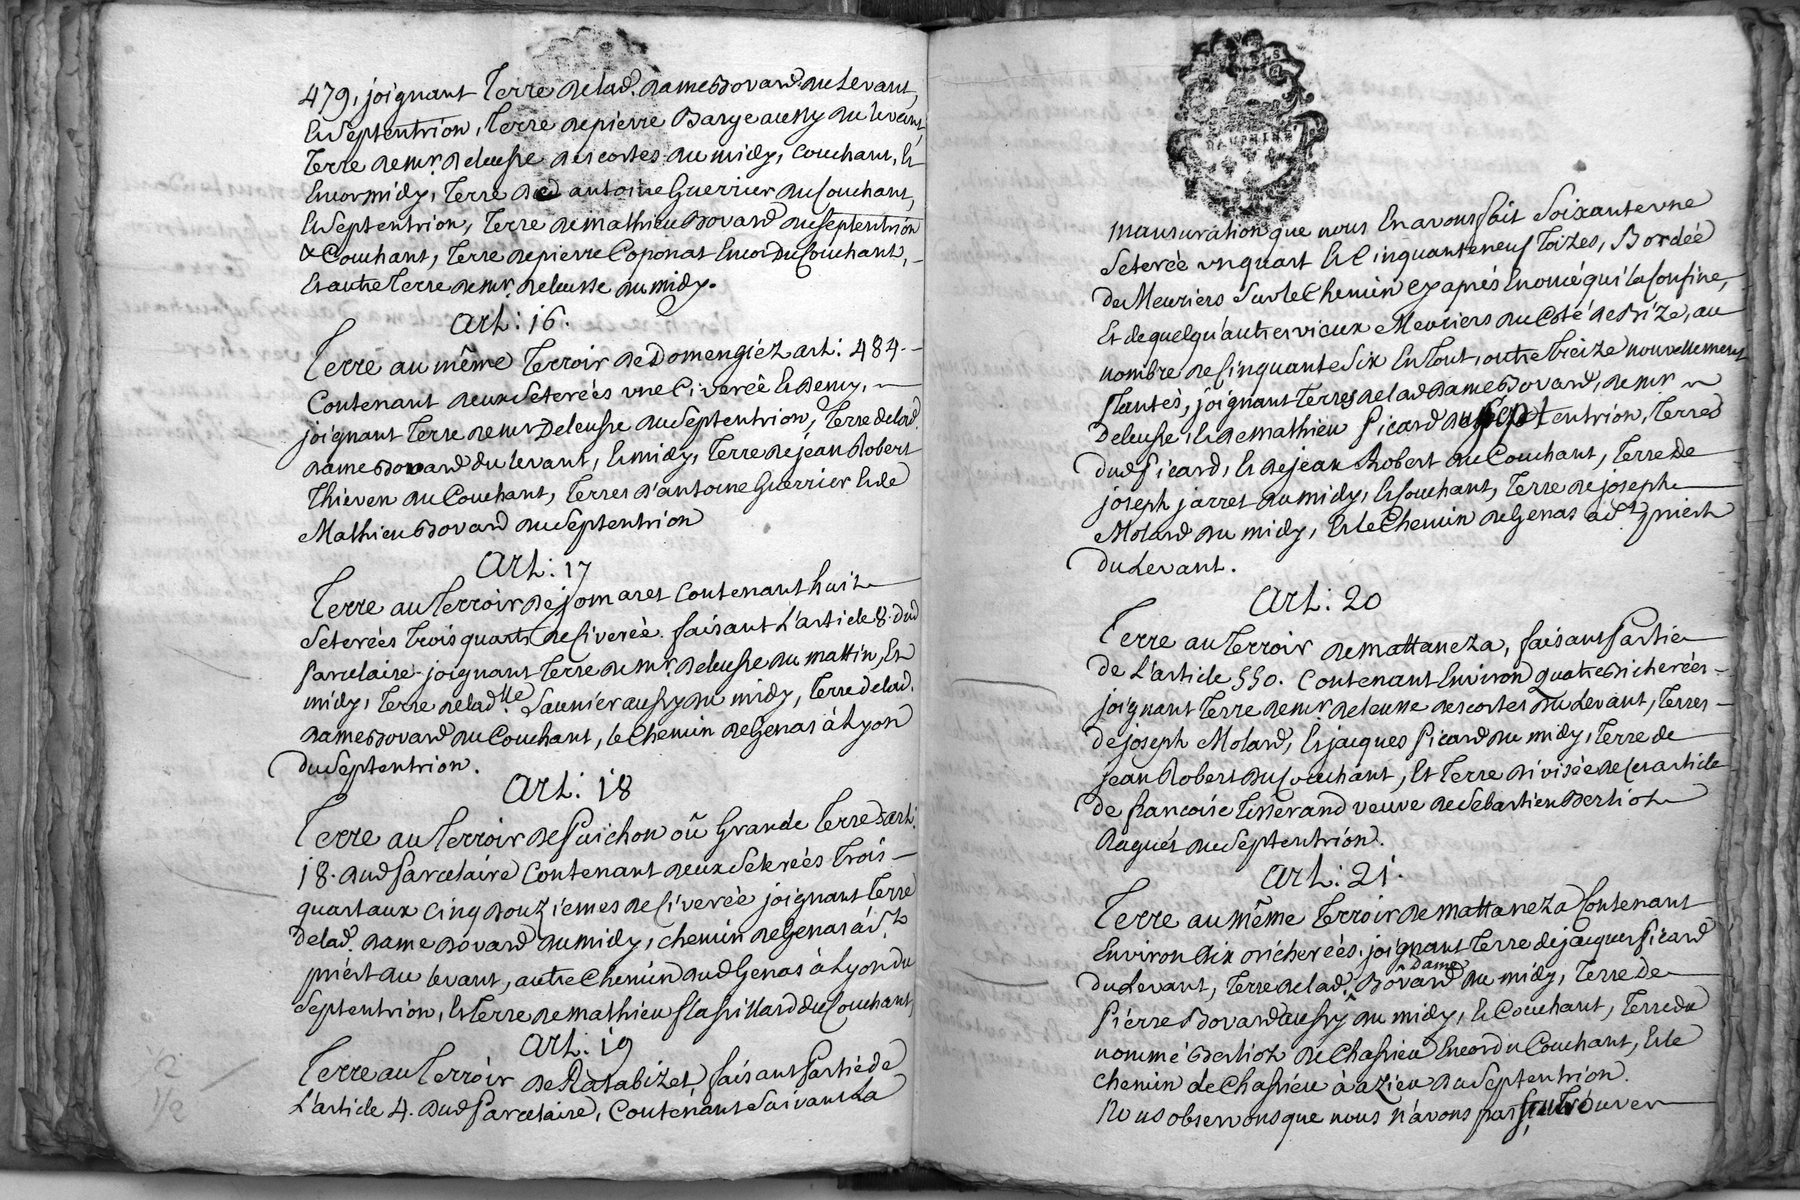 479, joignant Terre de lad. dame Bovard du Levant,
Et Septentrion, Terre de pierre Barge aussy du levant,
Terre de mr. deleusse des cortes du midy, Couchant, Et
Encor midy, Terre de antoine Guerrier du Couchant,
Et Septentrion, Terre de mathieu Bovard du septentrion
& Couchant, Terre de pierre Coponat Encor Du Couchant,
Et autre Terre de mr. deleusse du midy.
Art: 16.
Terre au même Terroir de Domengiez art: 484.
Contenant deux Seterées une Civerée Et demy,
joignant Terre de mr. Deleusse du Septentrion, Terre de lad.
dame Bovard du levant, Et midy, Terre de jean Robert
Thieven du Couchant, Terres d'antoine Guerrier Et de
Mathieu Bovard du Septentrion
Art: 17
Terre au Terroir de jomaret Contenant huit
Seterées Trois quarts de Civerée. faisant L'article 8. dud
Parcelaire joignant Terre de mr. deleusse du mattin, Et
midy, Terre de lad.lle Saunier aussy du midy, Terre de lad.
dame Bovard du Couchant, le Chemin de Genas à Lyon
Du Septentrion.
Art: 18
Terre au Terroir de Puichon où Grande Terre art:
18. dud Parcelaire Contenant deux Seterées Trois
quartaux Cinq Douziemes de Civerée joignant Terre
De lad. dame Bovard du midy, chemin de Genas à St
priest au levant, autre Chemin dud Genas à Lyon du
Septentrion, Et Terre de mathieu Plassillard du Couchant,
Art: 19
Terre au Terroir de Ratabizet, faisant Partie de
L'article 4. dud Parcelaire, Contenant Suivant La
DAUPHINÉ
mansuration que nous En avons fait Soixante une
Seterée un quart Et Cinquante neuf Toizes, Bordée
De Meuriers Sur le Chemin cy après Enoncé qui la Confine,
Et de quelqu'autres vieux Meuriers du Coté de Bize, au
nombre de Cinquante Six En Tout, outre Treize nouvellement
Plantés, joignant Terres de lad dame Bovard, de mr
Deleusse, Et de mathieu Picard du Septentrion, Terres
Dud Picard, Et de jean Robert du Couchant, Terre De
joseph jarret du midy, Et Couchant, Terre de joseph
Molard du midy, Et le Chemin de Genas à St priest
Du Levant.
Art: 20
Terre au Terroir de mattaneza, faisant Partie
de L'article 550. Contenant Environ quatre Bicherées
joignant Terre de mr. deleusse des cortes Du Levant, Terres
De joseph Molard, Et jacques Picard du midy, Terre de
jean Robert Du Couchant, Et Terre divisée de Cet article
de francoise Tisserand veuve de Sebastien Berlioz
Raquet du Septentrion.
Art: 21.
Terre au même Terroir de mattaneza Contenant
Environ Six Bicherées, joignant Terre de jacques Picard
Du Levant, Terre de lad. Dame Bovard du midy, Terre de
Pierre Bovard aussy du midy, Et Couchant, Terre du
nommé Berlioz de Chassieu Encor du Couchant, Et le
chemin de Chassieu à azieu du Septentrion.
Nous observons que nous n'avons pas trouver
1/2